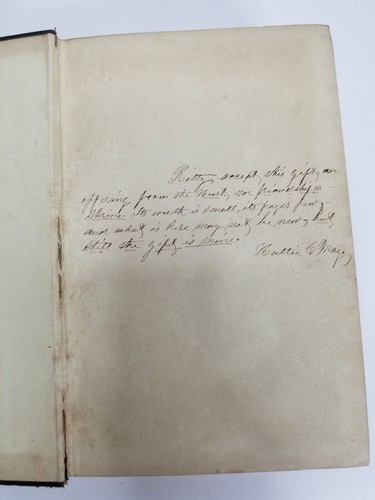 Kitty, accept this gift, an
offering from the Heart, on friendship's
Shrine. Its worth is small, its pages few,
and what is here may not be new, but
still the gift is mine.
Hattie C May,